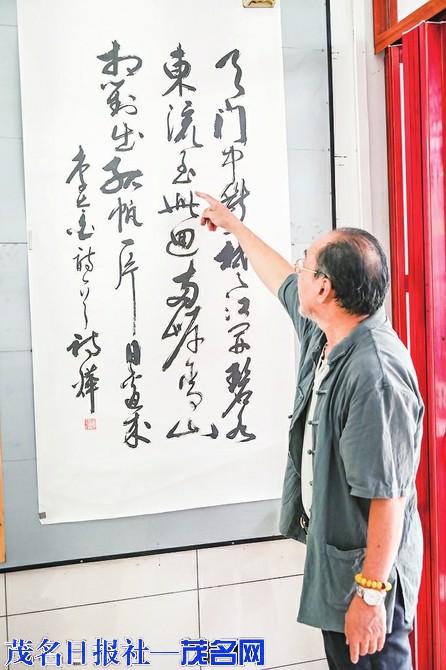 天门中斷楚江开碧水
東流至此回两岸青山
相對出孤帆一片日邊来
李太白诗
茂名日报社—茂名网